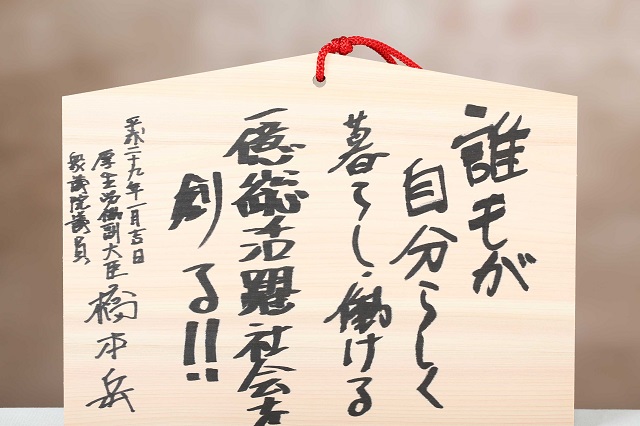 誰もが
自分らしく
暮らし・働ける
一億総活躍社会を
創る!!
平成二十九年一月吉日
厚生労働副大臣
衆議院議員
橋本岳